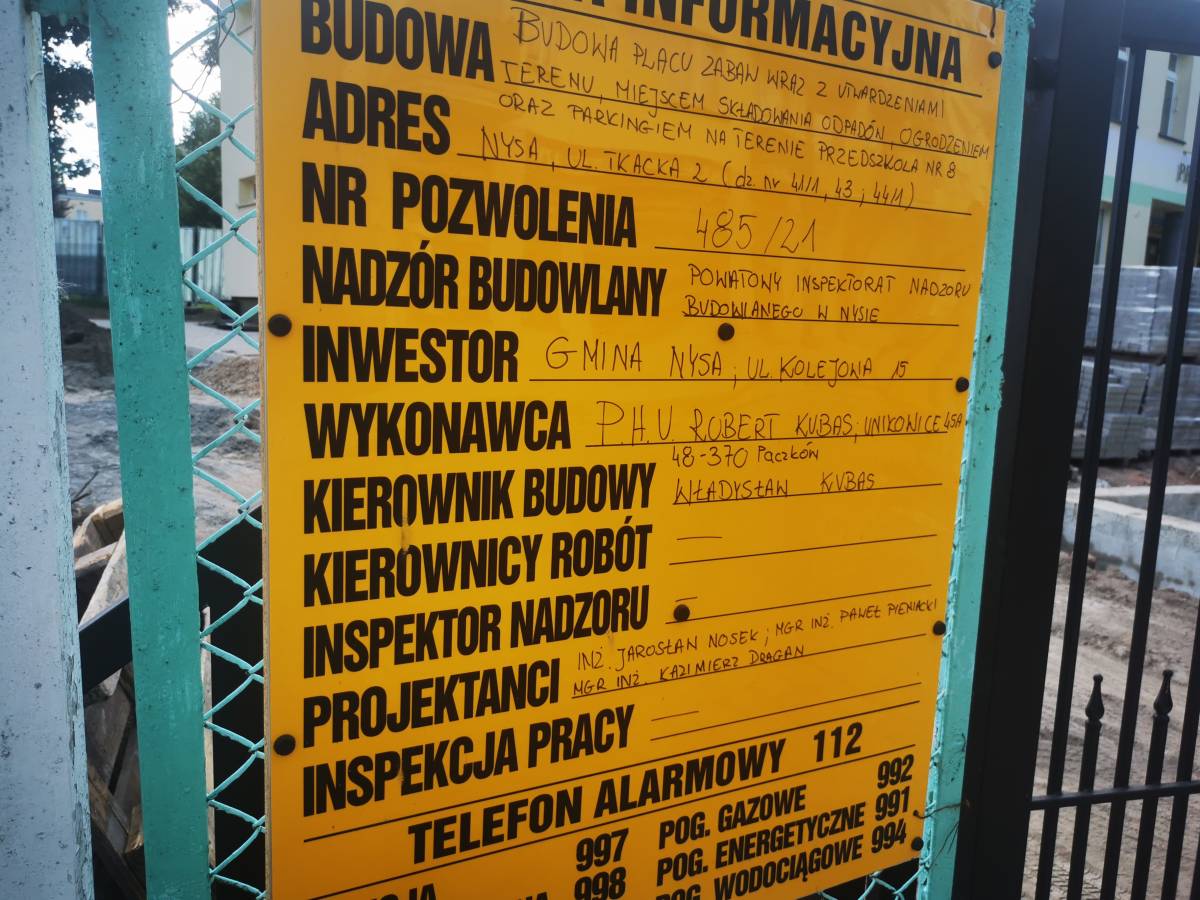 INFORMACYJNA
BUDOWA BUDOWA PLACU ZABAW WRAZ Z UTWARDZENIAMI
TERENU, MIEJSCEM SKŁADOWANIA ODPADÓW, OGRODZENIEM
ORAZ PARKINGIEM NA TERENIE PRZEDSZKOLA NR 8
ADRES NYSA, UL. TKACKA 2 (dz. nr 41/1, 43; 44/1)
NR POZWOLENIA 485/21
NADZÓR BUDOWLANY POWIATOWY INSPEKTORAT NADZORU
BUDOWLANEGO W NYSIE
INWESTOR GMINA NYSA, UL. KOLEJOWA 15
WYKONAWCA P.H.U ROBERT KUBAS, UNIKOWICE 45A
48-370 Paczków
KIEROWNIK BUDOWY WŁADYSŁAW KUBAS
KIEROWNICY ROBÓT —
INSPEKTOR NADZORU —
PROJEKTANCI INŻ. JAROSŁAN NOSEK; MGR INŻ. PAWEŁ PIENIACKI
MGR INŻ. KAZIMIERZ DRAGAN
INSPEKCJA PRACY —
TELEFON ALARMOWY 112
997 POG. GAZOWE 992
998 POG. ENERGETYCZNE 991
POG. WODOCIĄGOWE 994